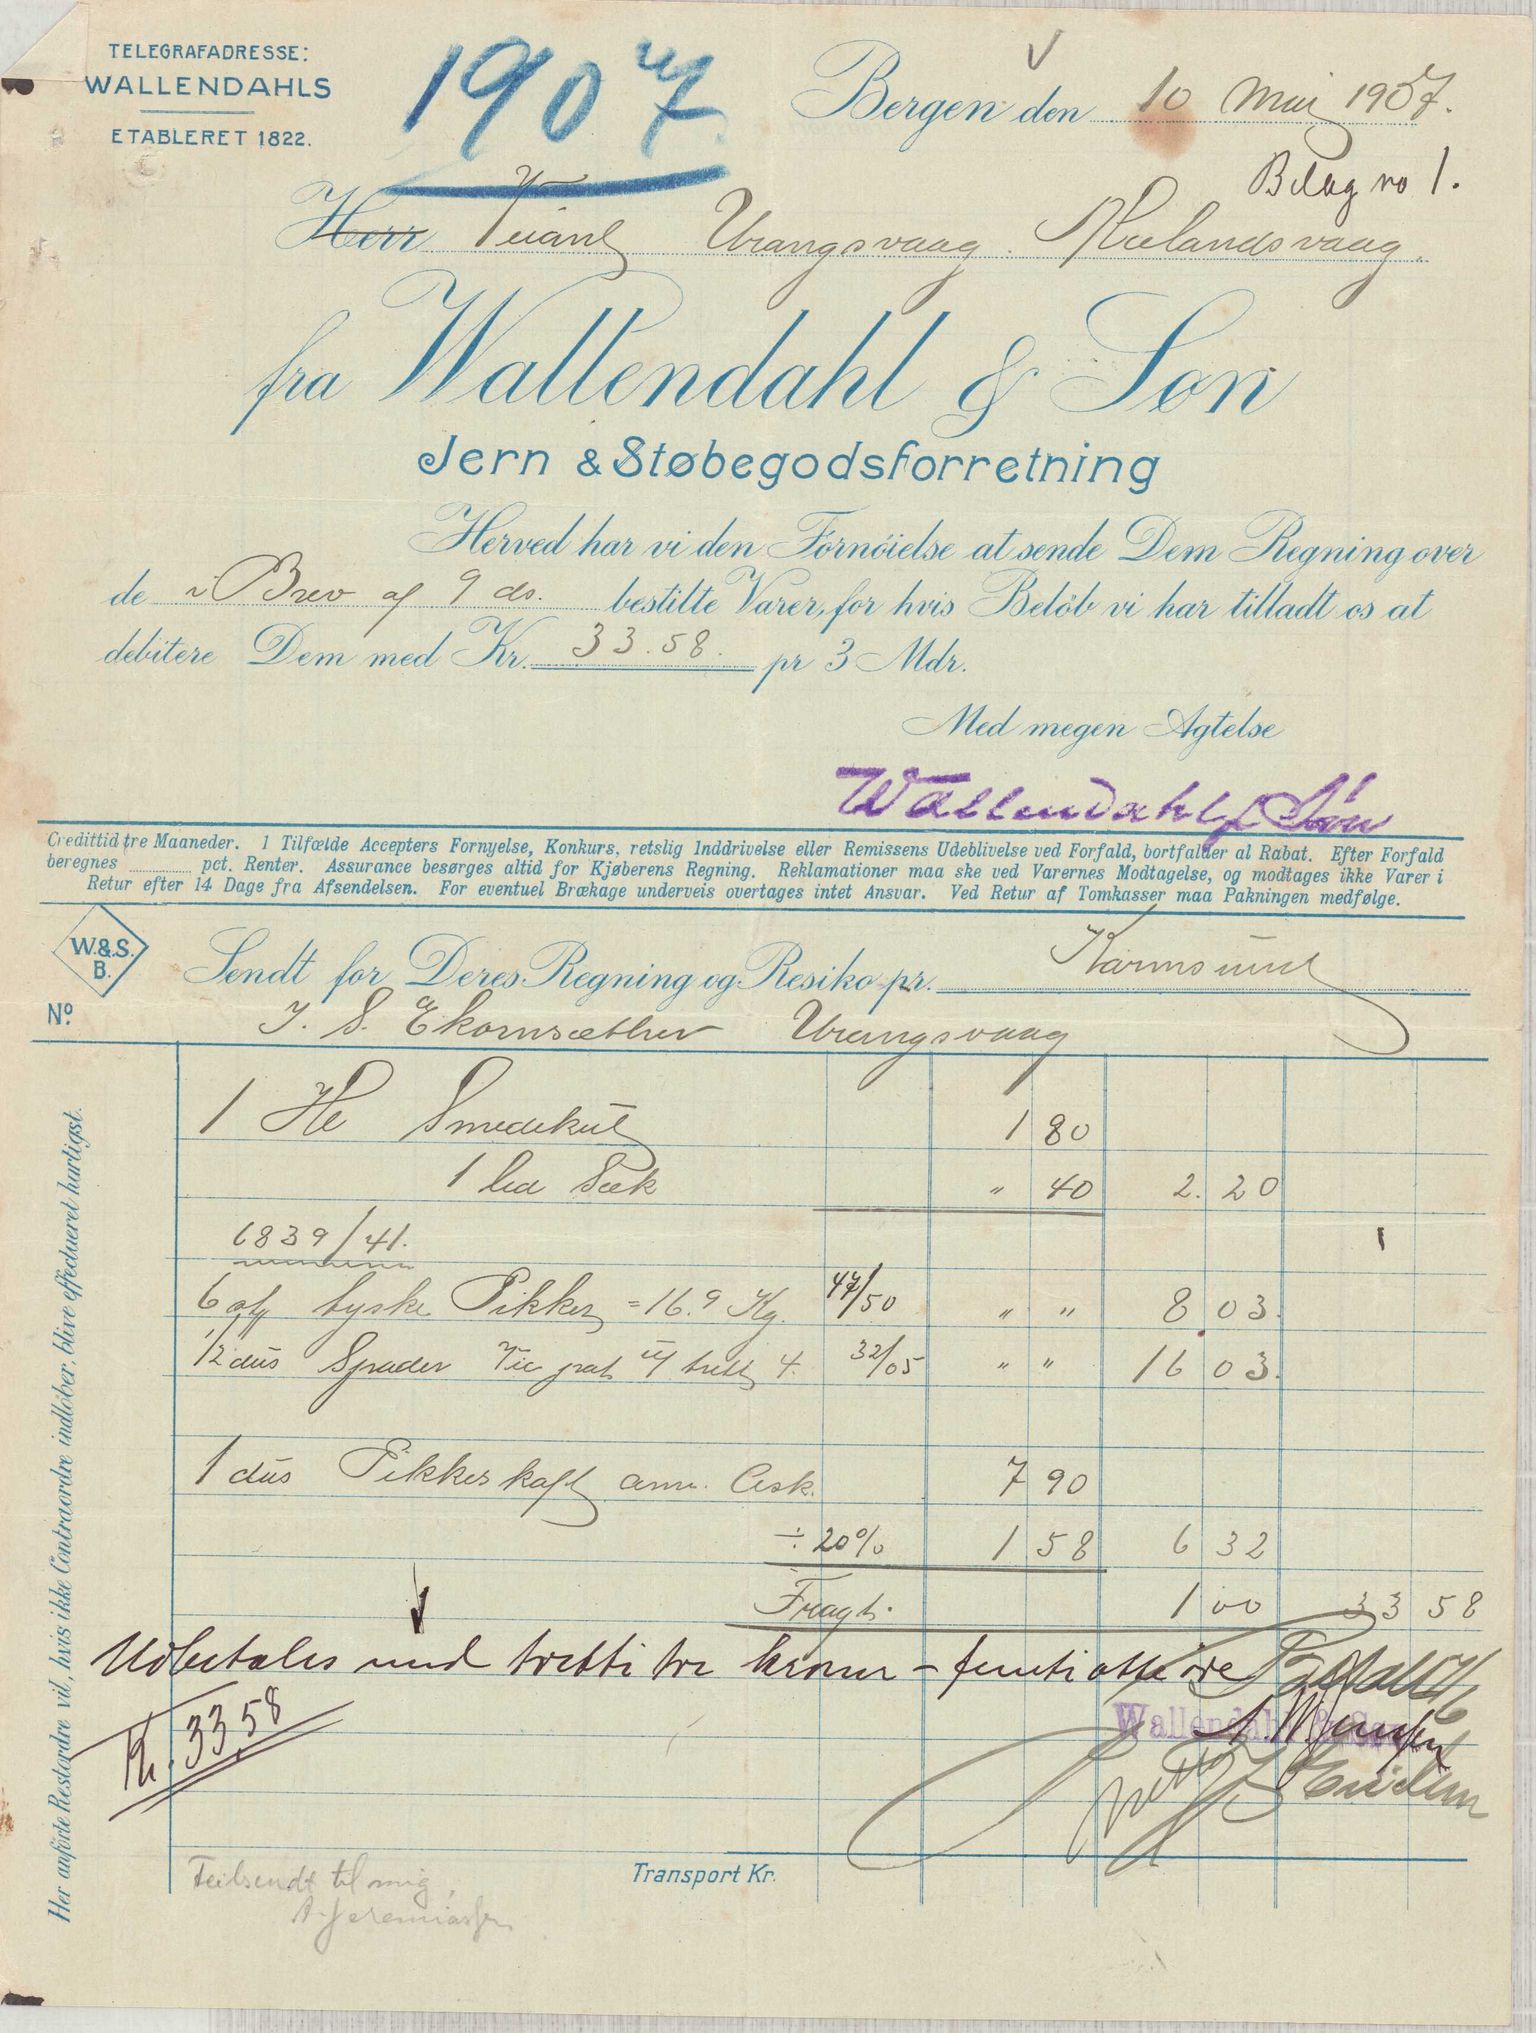 TELEGRAFADRESSE:
WALLENDAHLS
ETABLERET 1822.
1907
Bergen den 10 Mai 1907.
Bilag no 1.
Herr Urangsvaag.
fra Wallendahl & Søn
Jern & Støbegodsforretning
Herved har vi den Fornöielse at sende Dem Regning over
de i Brev af 9 ds. bestilte Varer, for hvis Belöb vi har tilladt os at
debitere Dem med Kr. 33.58. pr 3 Mdr.
Med megen Agtelse
Wallendahl & Søn
Credittid tre Maaneder. I Tilfælde Accepters Fornyelse, Konkurs, retslig Inddrivelse eller Remissens Udeblivelse ved Forfald, bortfalder al Rabat. Efter Forfald
beregnes pct. Renter. Assurance besørges altid for Kjøberens Regning. Reklamationer maa ske ved Varernes Modtagelse, og modtages ikke Varer i
Retur efter 14 Dage fra Afsendelsen. For eventuel Brækage underveis overtages intet Ansvar. Ved Retur af Tomkasser maa Pakningen medfølge.
W.&S.
B.
Sendt for Deres Regning og Resiko pr. Karmsund
No.
J. S. Ekornsæther Urangsvaag
1 Hl Smedekul 1 80
1 Sæk " 40 2. 20
6839/41.
6 tyske Pikker = 16.9 Kg. 47/50 " " 8 03.
1/2 dus Spader 32/05 " " 16 03.
1 dus Pikkerskaft am. Ask. 7 90
÷ 20% 1 58 6 32
Fragt. 1 00 33 58
Udbetales med tretti tre kroner – femtiotte øre
Betalt
Kr. 33.58
Wallendahl & Søn
Transport Kr.
Feilsendt til mig,
A. Jeremiassen
Her anförte Restordre vil, hvis ikke Contraordre indlöber, blive effectueret hurtigst.